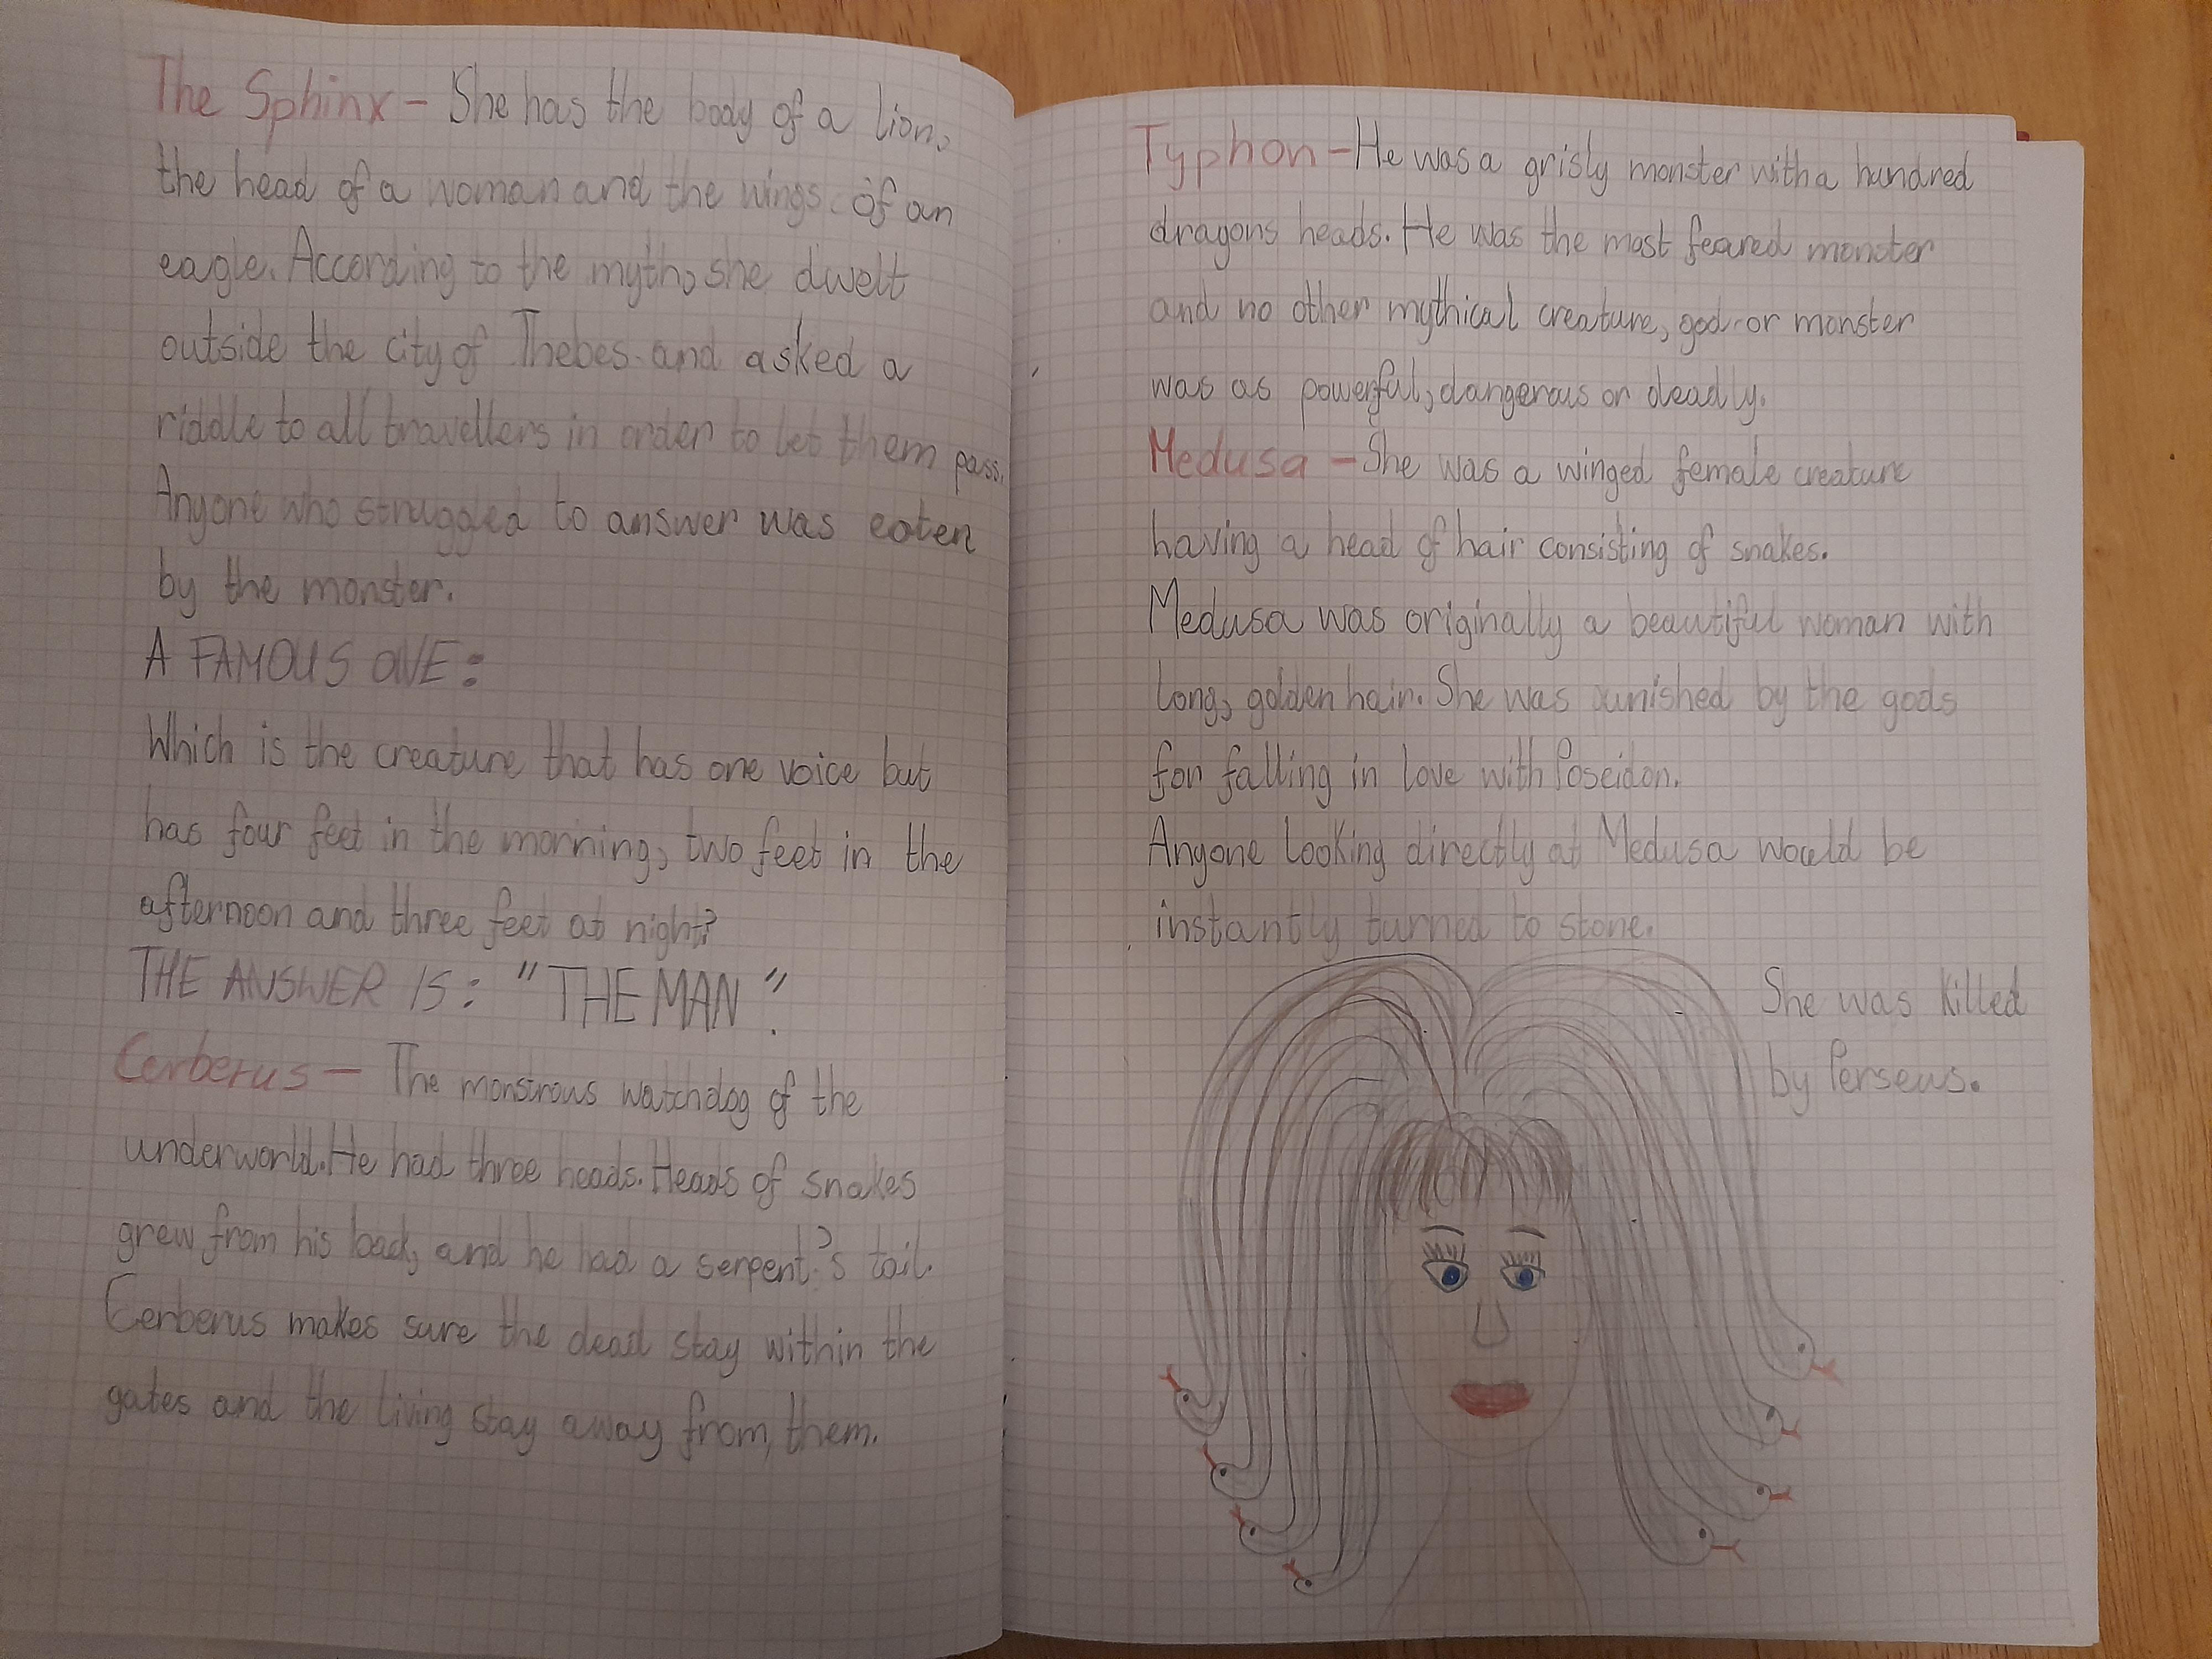 The Sphinx - She has the body of a lion,
the head of a woman and the wings of an
eagle. According to the myth, she dwelt
outside the city of Thebes and asked a
riddle to all travellers in order to let them pass.
Anyone who struggled to answer was eaten
by the monster.
A FAMOUS ONE:
Which is the creature that has one voice but
has four feet in the morning, two feet in the
afternoon and three feet at night?
THE ANSWER IS: "THE MAN".
Cerberus - The monstrous watchdog of the
underworld. He had three heads. Heads of snakes
grew from his back, and he had a serpent's tail.
Cerberus makes sure the dead stay within the
gates and the living stay away from, them.
Typhon - He was a grisly monster with a hundred
dragons heads. He was the most feared monster
and no other mythical creature, god or monster
was as powerful, dangerous or deadly.
Medusa - She was a winged female creature
having a head of hair consisting of snakes.
Medusa was originally a beautiful woman with
long, golden hair. She was punished by the gods
for falling in love with Poseidon.
Anyone looking directly at Medusa would be
instantly turned to stone.
She was killed
by Perseus.